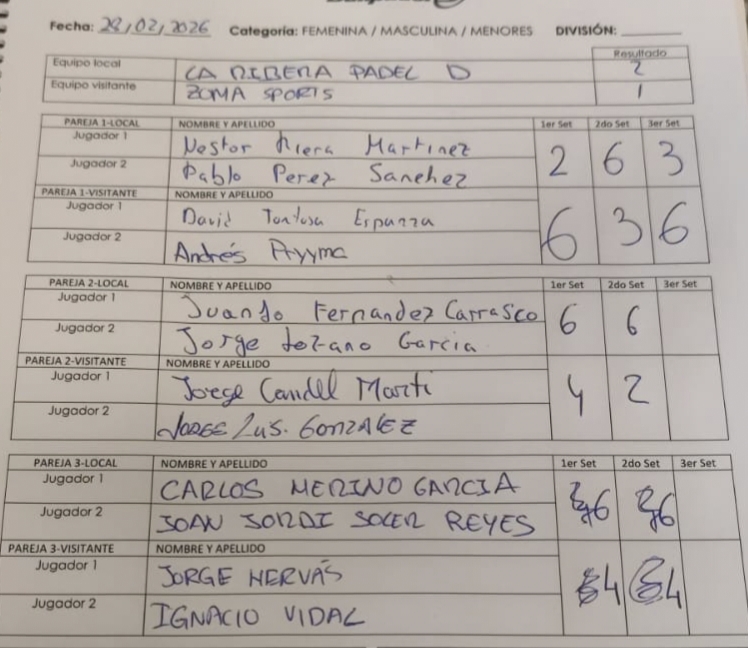 Fecha: 28/02/2026 Categoría: FEMENINA / MASCULINA / MENORES DIVISIÓN:
Resultado
Equipo local LA RIBERA PADEL D 2
Equipo visitante ZOMA SPORTS 1
PAREJA 1-LOCAL NOMBRE Y APELLIDO 1er Set 2do Set 3er Set
Jugador 1 Nestor Riera Martinez
2 6 3
Jugador 2 Pablo Perez Sanchez
PAREJA 1-VISITANTE NOMBRE Y APELLIDO
Jugador 1 David Tortosa
6 3 6
Jugador 2 Andrés Pryyma
PAREJA 2-LOCAL NOMBRE Y APELLIDO 1er Set 2do Set 3er Set
Jugador 1 Juanjo Fernandez Carrasco
6 6
Jugador 2 Jorge Lozano Garcia
PAREJA 2-VISITANTE NOMBRE Y APELLIDO
Jugador 1 Jorge Candel Marti
4 2
Jugador 2 JORGE LUS. GONZALEZ
PAREJA 3-LOCAL NOMBRE Y APELLIDO 1er Set 2do Set 3er Set
Jugador 1 CARLOS MERINO GARCIA
6 6
Jugador 2 JOAN JORDI SOLER REYES
PAREJA 3-VISITANTE NOMBRE Y APELLIDO
Jugador 1 JORGE HERVÁS
4 4
Jugador 2 IGNACIO VIDAL